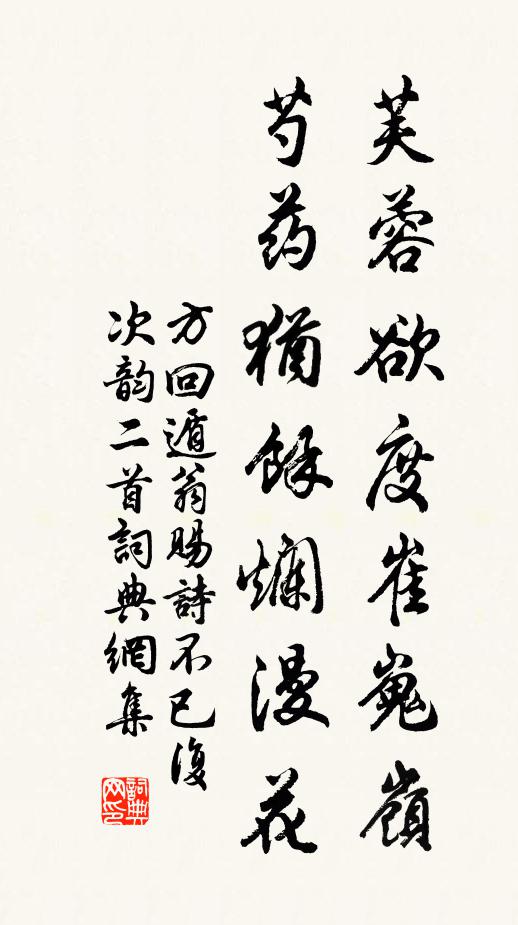 芙蓉欲度崔嵬嶺
芍药猶餘爛漫花
方回遁翁賜詩不已復
次韵二首詞典網集
詞典网印